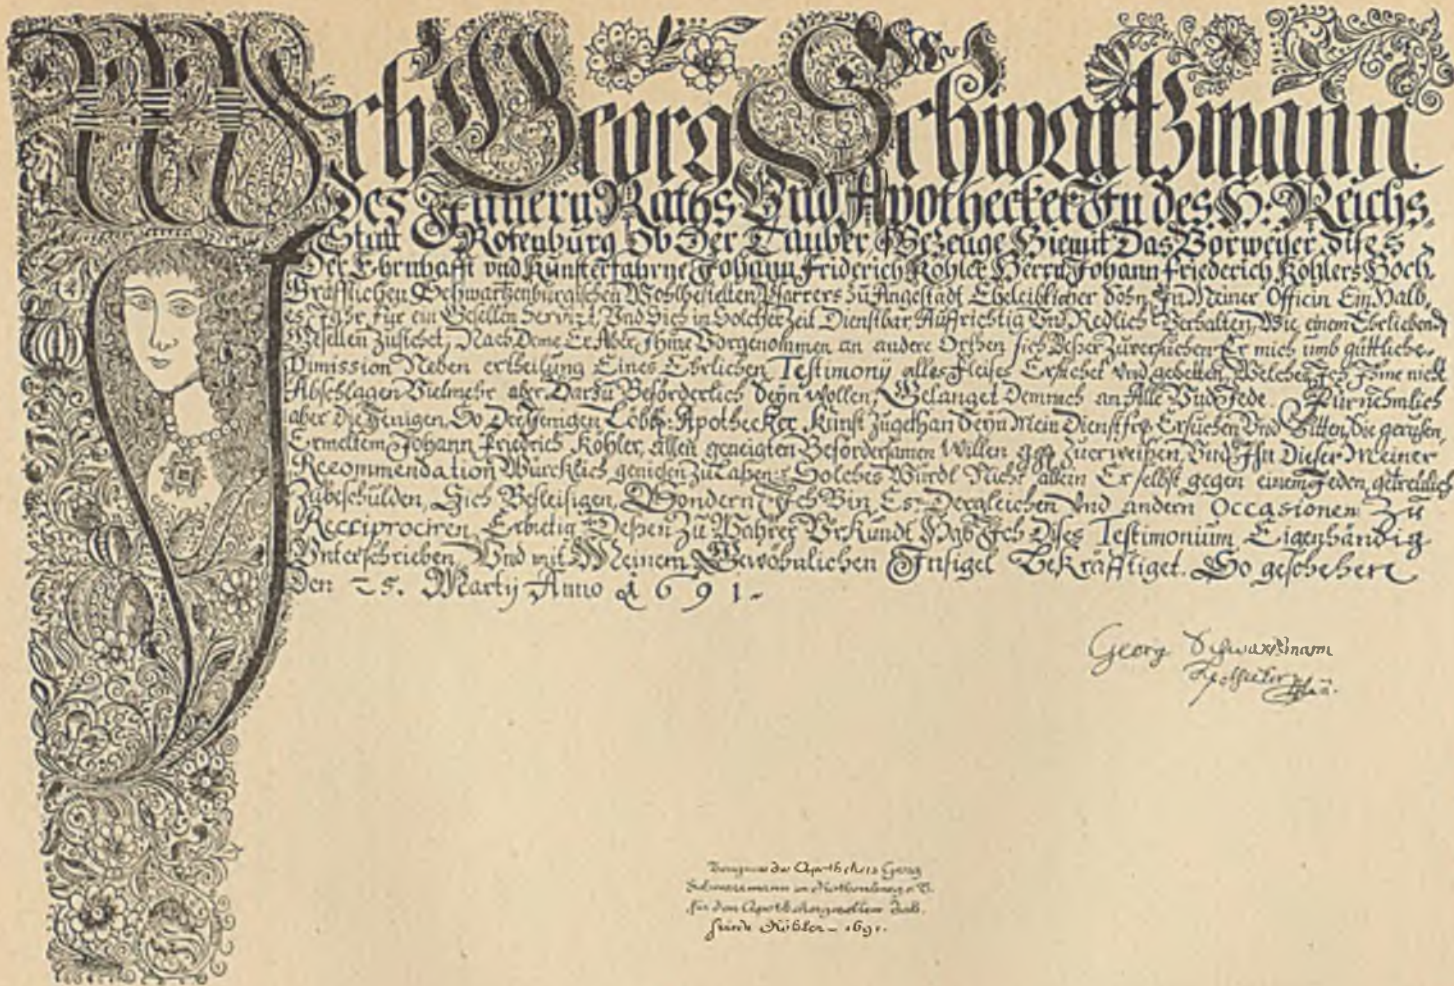 Ich Georg Schwartzmann
Des Innern Raths Und Apothecker In des H: Reichs,
Statt Rotenburg Ob Der Tauber Bezeuge Hiemit Das Vorweiser dises
Der Ehrnhafft vnd Kunsterfahrne Johann Friderich Köhler Herrn Johann Friederich Köhlers Hoch
Gräfflichen Schwartzenburgischen Wohlbestelten Pfarrers zu Angestadt Eheleiblicher Sohn In Meiner Officin Ein Halb,
es Jahr für ein Gesellen Servirt, Und Sich in Solcher Zeit Dienstbar, Auffrichtig Und Redlich Verhalten, Wie einem Ehrliebend
Gesellen Zustehet, Nach Deme Er Aber Ihme Vorgenommen an andere Orthen sich Beßer Zuversuchen Er mich umb güttliche
Dimission Neben ertheilung Eines Ehrlichen Testimony alles fleises Ersuchet vnd gebetten, Welches Ich Ihme nicht
Abschlagen Vielmehr aber Darzu Beförderlich Seyn Wollen, Gelanget Demnach an Alle Und Jede Fürnehmlich
aber Die Jenigen So Der Löbl: Apothecker Kunst Zugethan Seyn Mein Dienstfr. Ersuchen Und Bitten, Sie geruhen
Ermeltem Johann Friedrich Köhler, allen geneigten Befördersamen Willen Zuerweisen, Und Ihn Dieser Meiner
Recommendation Würcklich genießen Zu Laßen, Solches Würdt Nicht allein Er selbst gegen einem Jeden, getreulich
Zubeschulden, Sich Befleisigen, Sondern Ich Bin Es Dergleichen Und andern Occasionen Zu
Reciprociren Erbietig Deßen Zu Wahrer Vrkundt Hab Ich Dises Testimonium Eigenhändig
Unterschrieben, Und mit Meinem Gewöhnlichen Insigel Bekräfftiget. So geschehen
Den 25. Martij Anno 1691.
Georg Schwartzmann
Apotheker
Zeugnis des Apothekers Georg
Schwarzmann in Rothenburg o. T.
für den Apothekergesellen Joh.
Friedr. Köhler – 1691.